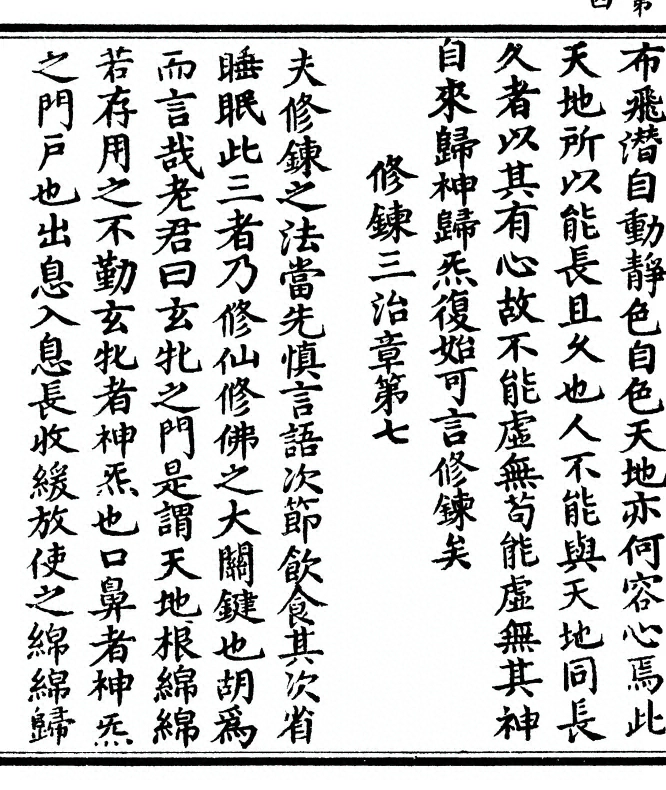 布飛潛自動靜色自色天地亦何容心焉此
天地所以能長且久也人不能與天地同長
久者以其有心故不能虛無苟能虛無其神
自來歸神歸炁復始可言修鍊矣
修鍊三治章第七
夫修鍊之法當先慎言語次節飲食其次省
睡眠此三者乃修仙修佛之大關鍵也胡爲
而言哉老君曰玄牝之門是謂天地根綿綿
若存用之不勤玄牝者神炁也口鼻者神炁
之門戶也出息入息長收緩放使之綿綿歸